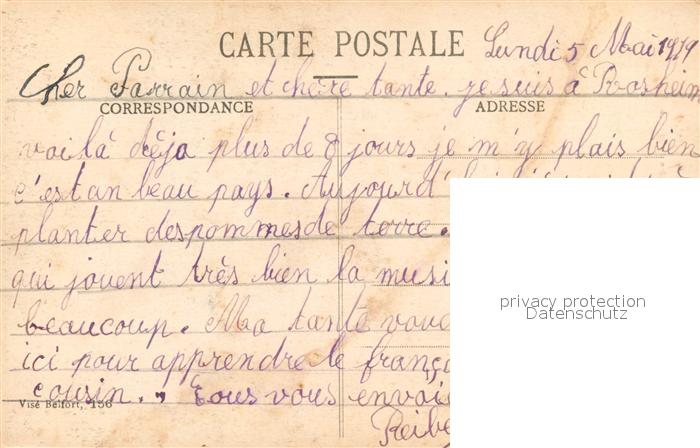 CARTE POSTALE Lundi 5 Mai 1919
Cher Parrain et chère tante. je suis à Rosheim
CORRESPONDANCE ADRESSE
voilà déja plus de 8 jours je m'y plais bien
c'est un beau pays. Aujourd'
planter des pommes de terre.
qui jouent très bien la musi
privacy protection
Datenschutz
beaucoup. Ma tante
ici pour apprendre le franç
cousin. Tous vous
Visé Belfort, 156